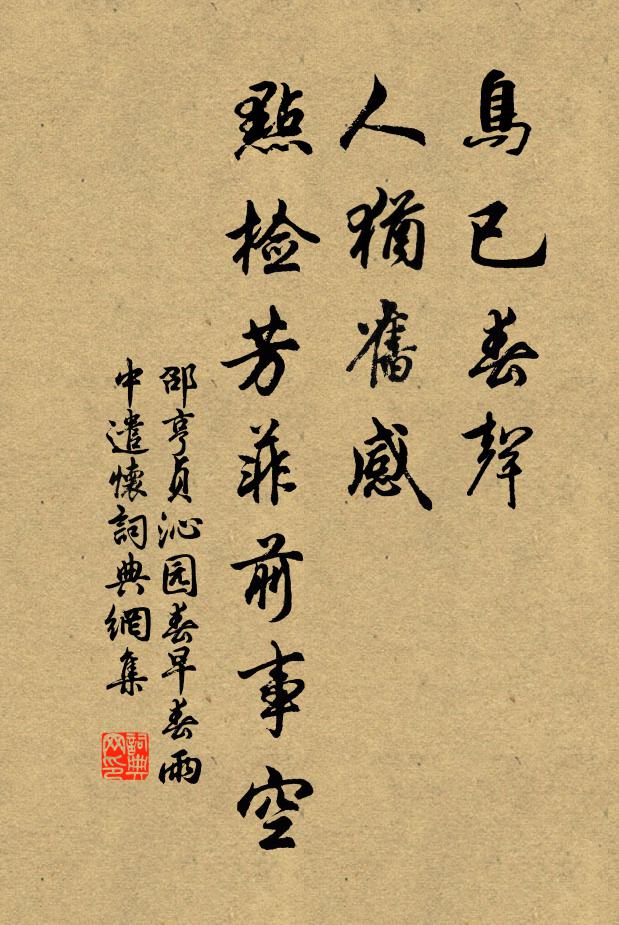 鳥已春聲
人猶舊感
點檢芳菲前事空
邵亨貞沁园春早春雨
中遣懷詞典網集
詞典
网印